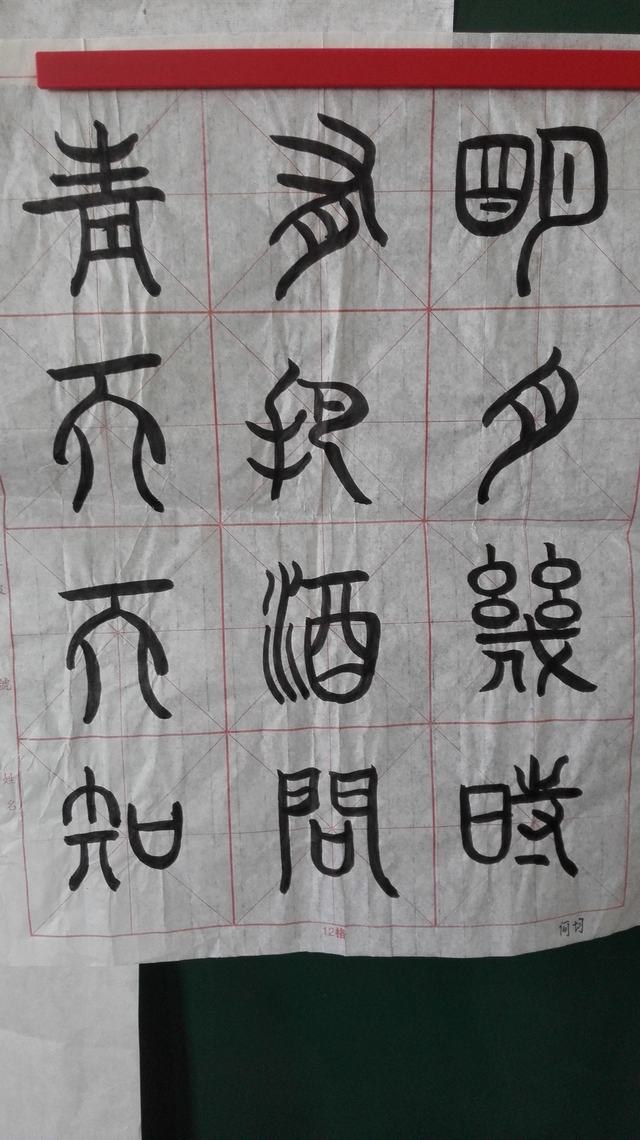 明月幾時
有把酒問
青天天知
12格
姓名
號